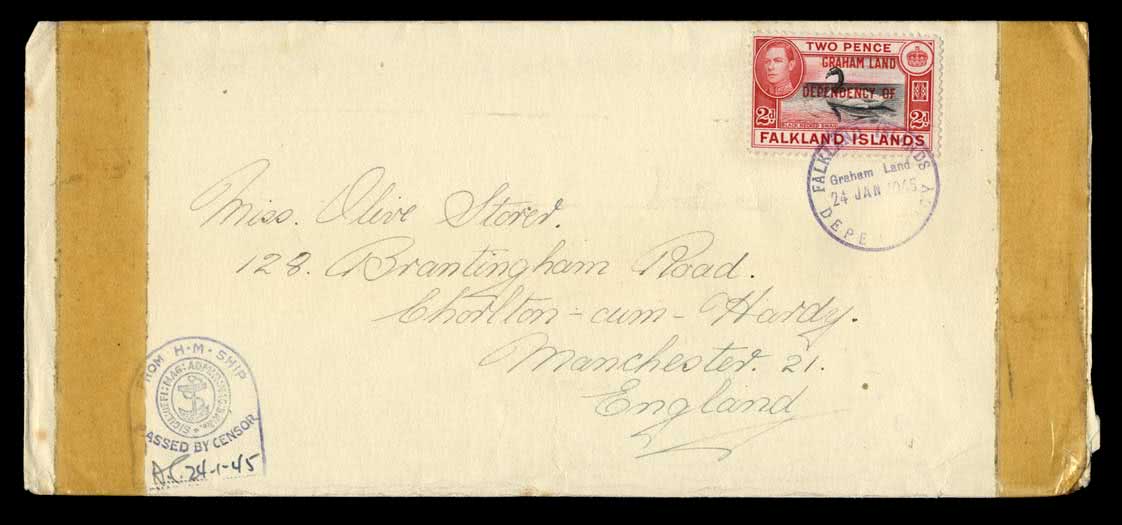 TWO PENCE
GRAHAM LAND
DEPENDENCY OF
2d 2d
BLACK NECKED SWAN
FALKLAND ISLANDS
FALKLAND ISLANDS
Graham Land
24 JAN 1945
DEPE CY
Miss. Olive Storer.
128. Brantingham Road.
Chorlton-cum-Hardy.
Manchester. 21.
England
ROM H·M·SHIP
ASSED BY CENSOR
24-1-45